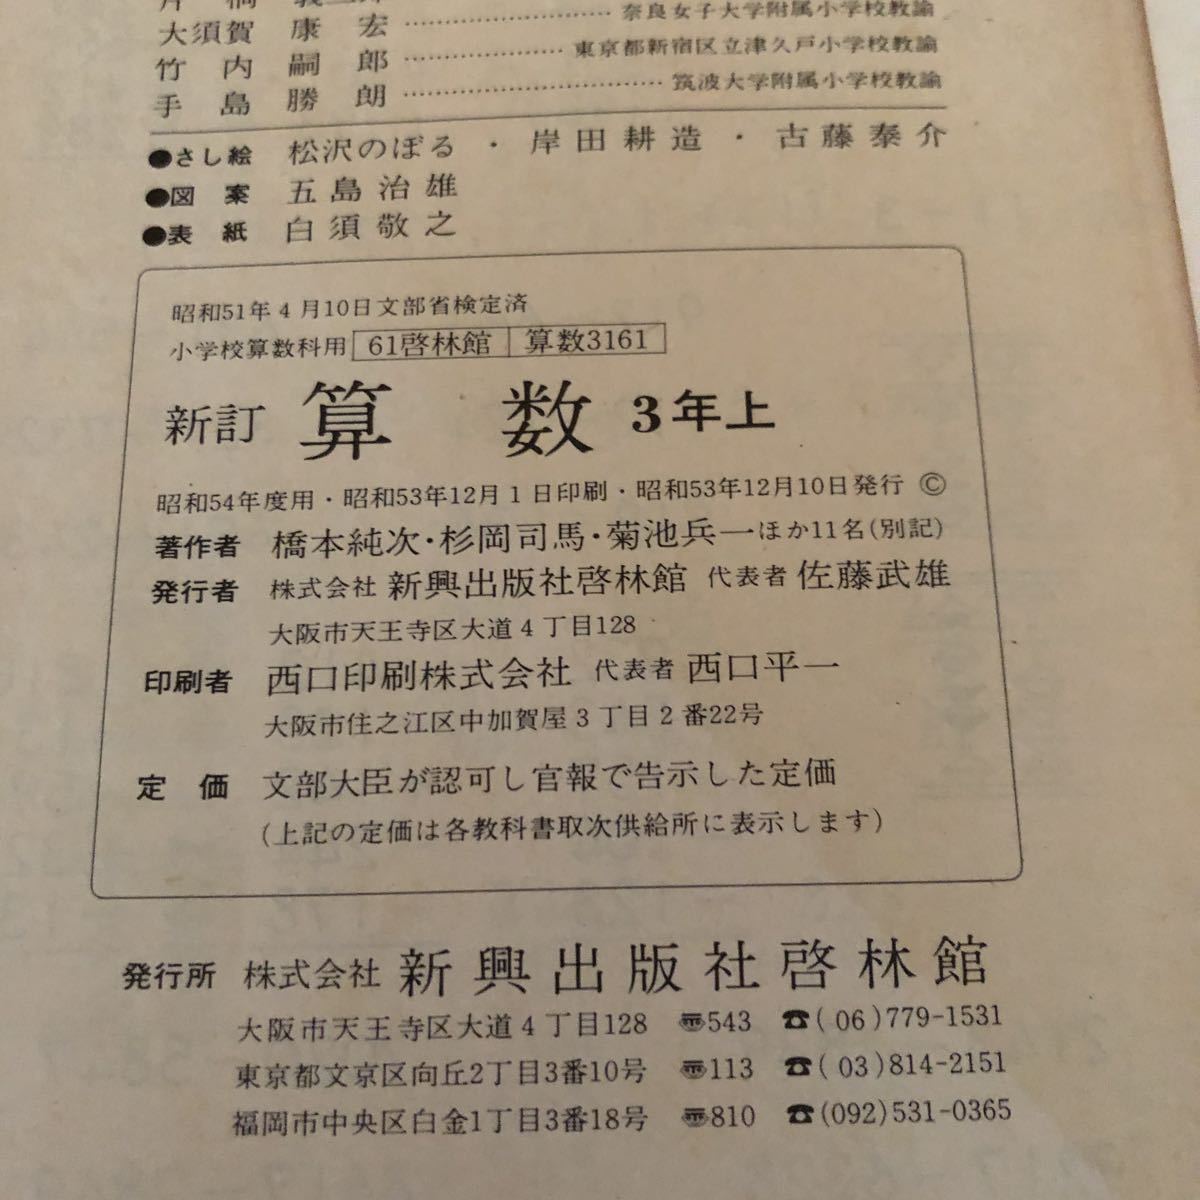 奈良女子大学附属小学校教諭
大須賀 康宏
竹内嗣郎 東京都新宿区立津久戸小学校教諭
手島勝朗 筑波大学附属小学校教諭
●さし絵 松沢のぼる・岸田耕造・古藤泰介
●図案 五島治雄
●表紙 白須敬之
昭和51年4月10日文部省検定済
小学校算数科用 61啓林館 算数3161
新訂 算数 3年上
昭和54年度用・昭和53年12月1日印刷・昭和53年12月10日発行 ©
著作者 橋本純次・杉岡司馬・菊池兵一ほか11名(別記)
発行者 株式会社 新興出版社啓林館 代表者 佐藤武雄
大阪市天王寺区大道4丁目128
印刷者 西口印刷株式会社 代表者 西口平一
大阪市住之江区中加賀屋3丁目2番22号
定価 文部大臣が認可し官報で告示した定価
(上記の定価は各教科書取次供給所に表示します)
発行所 株式会社 新興出版社啓林館
大阪市天王寺区大道4丁目128 〠543 ☎(06)779-1531
東京都文京区向丘2丁目3番10号 〠113 ☎(03)814-2151
福岡市中央区白金1丁目3番18号 〠810 ☎(092)531-0365